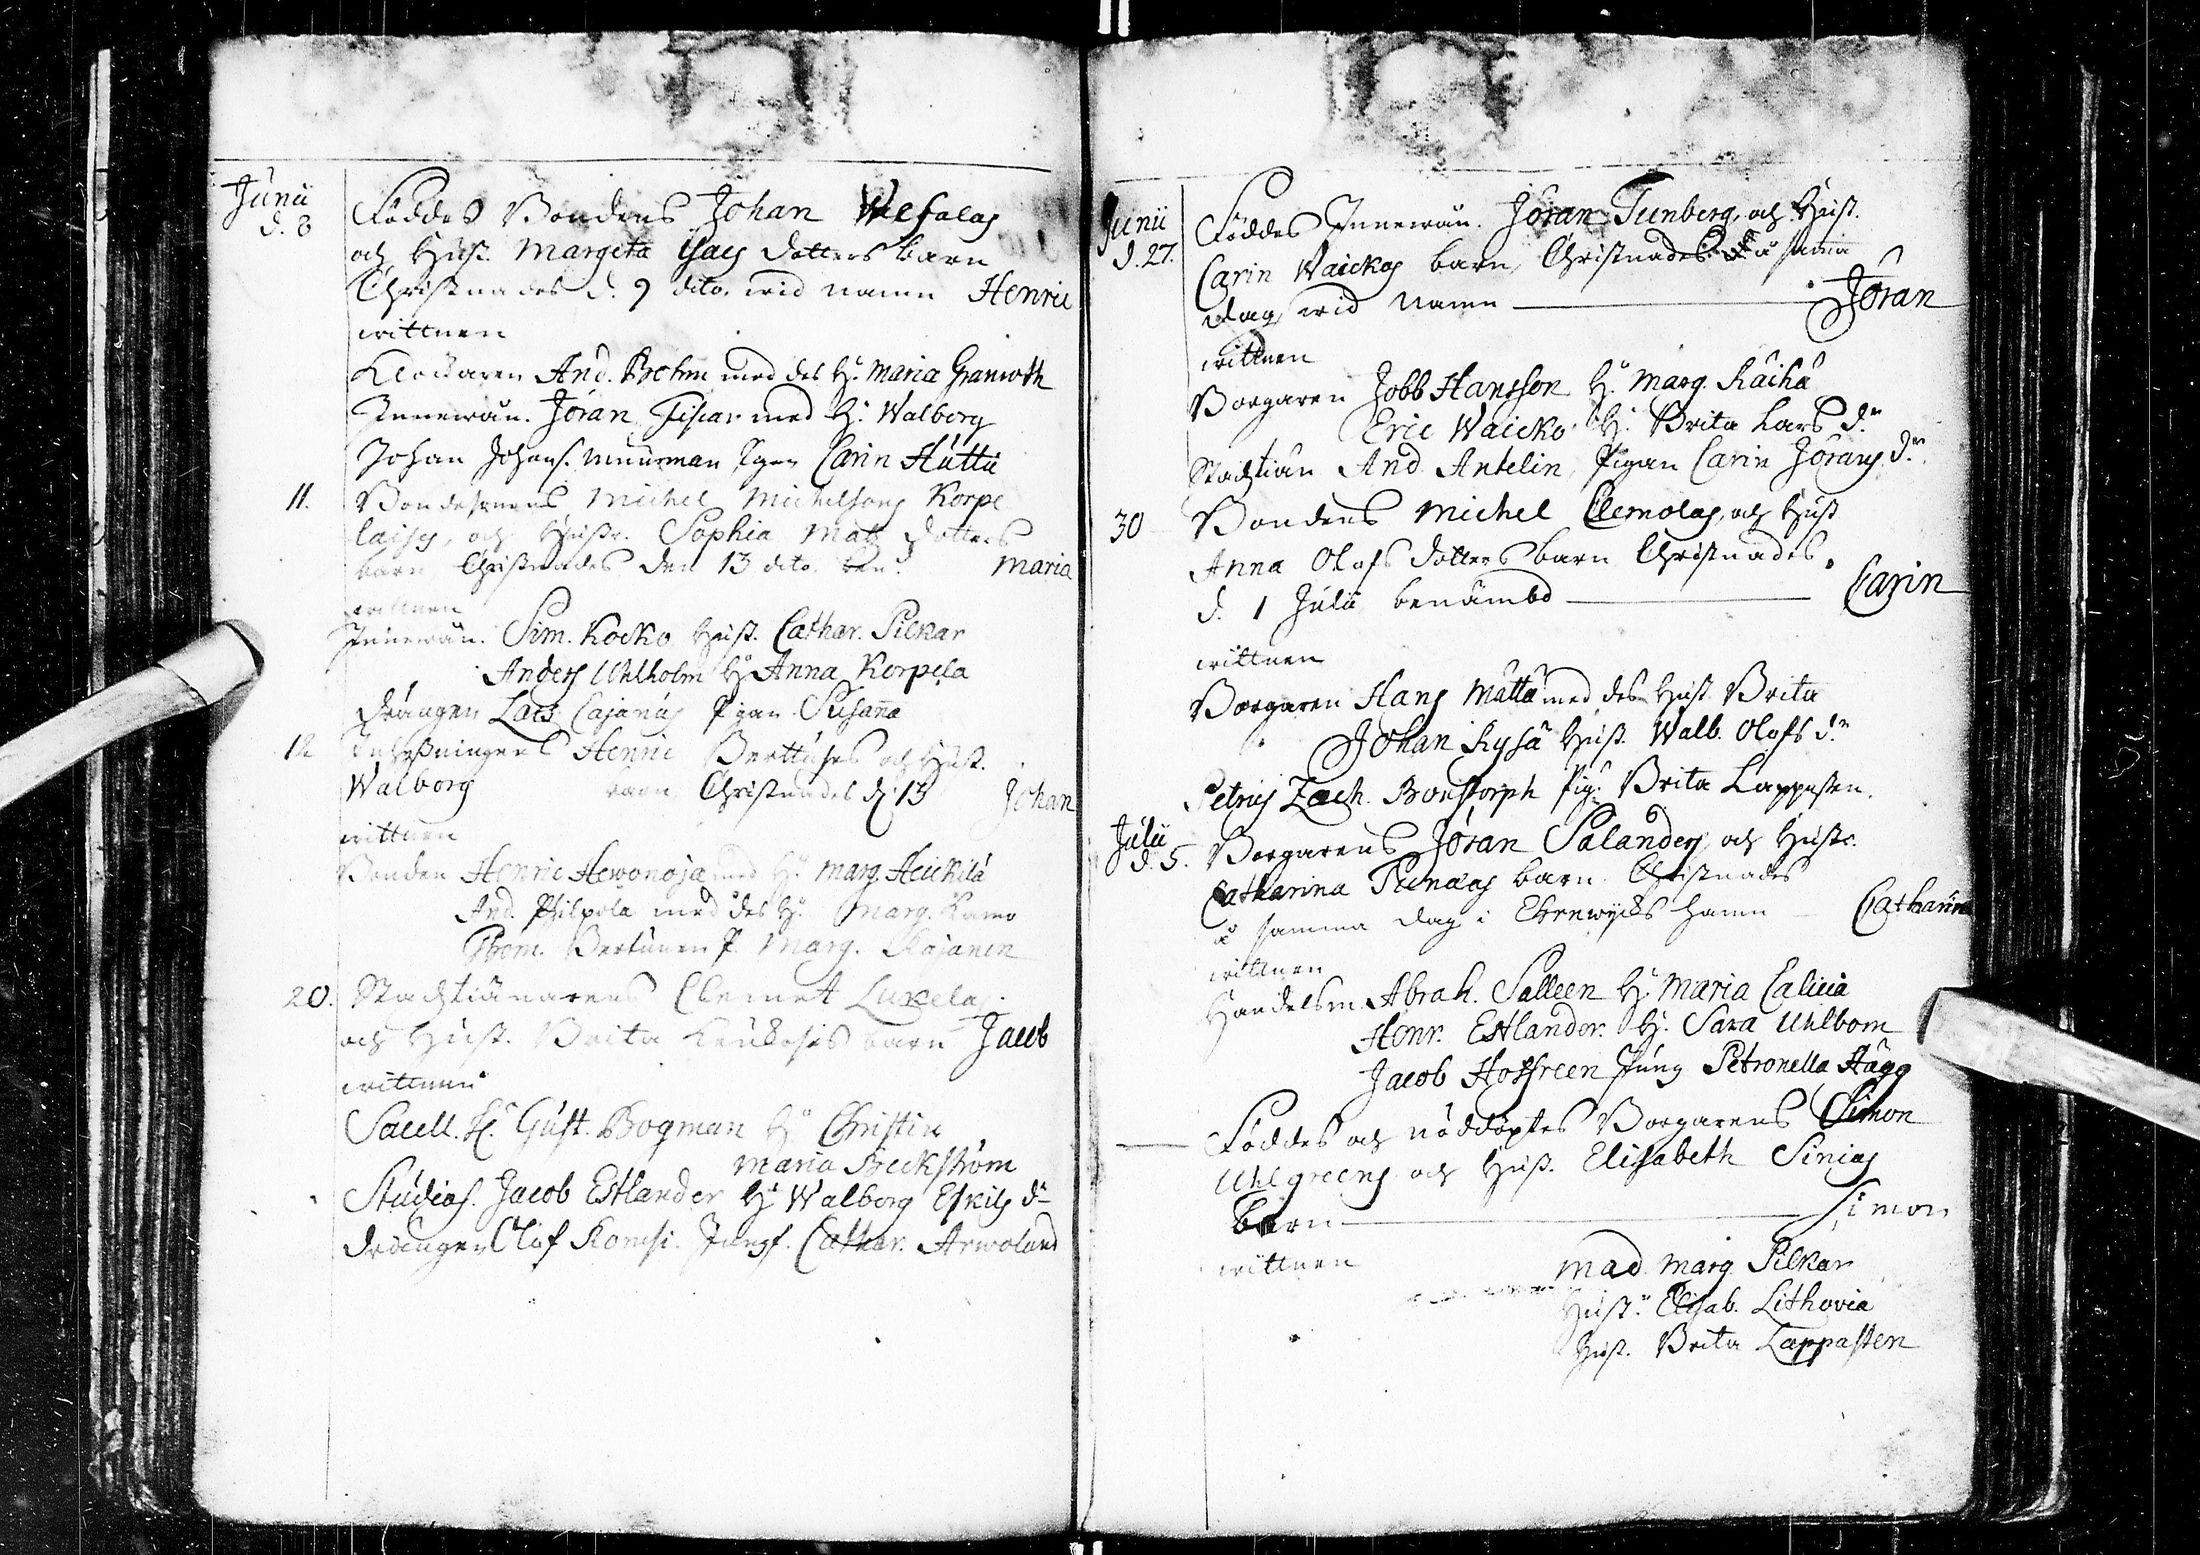 Junii
d. 8 Föddes Bondens Johan Welfalas
och Hust. Margeta Isacs dotters barn
Christnades d. 9 dito. wid namn Henric
wittnen
Klockaren And. Brehm med des H:u Maria Granroth
Innewån. Jöran Piscar med H: Walborg
Johan Johans. Muurman Pigan Carin Huttu
11. Bondesonens Michel Michelsons Korpe
laises, och Hustr. Sophia Mats dotters
barn Christnades den 13 dito. ben:d Maria
wittnen
Innewån. Sim. Kocko Hust. Cathar. Pilkar
Anders Uhlholm H: Anna Korpela
Drängen Lars Cajanus Pigan Susanna
12 Henric Berttunes och Hust.
Walborg barn Christnades d. 13 Johan
wittnen
Bonden Henric Hewonoja med H:u Marg. Heickilä
And. Philpola med des H:u Marg. Kamo
Thom. Bertunen P. Marg. Kajanen
20. Stadztiänarens Clemet Luxelas
och Hust. Brita Leuckosis barn Jacob
wittnen
Sacell. H. Gust. Bogman H:u Christin
Maria Beckström
Studios. Jacob Estlander H:u Walborg Eskils d:r
Drängen Olof Komsi. Jungf. Cathar. Arwoland
Junii
d. 27. Föddes Innewån. Jöran Tunberg, och Hust.
Carin Waickos barn, Christnades å samma
dag, wid namn Jöran
wittnen
Borgaren Jobb Hansson H:u Marg. Räihä
Eric Waicko H: Brita Lars d:r
Stadztiän And. Antelin, Pigan Carin Jörans d:r
30 Bondens Michel Clemolas, och Hust
Anna Olofs dotters barn Christnades
d. 1 Julii benämbd Carin
wittnen
Borgaren Hans Matta med des Hust Brita
Johan Rysä Hust. Walb. Olofs d:r
Petrus Zach. Bonstorph Pig: Brita Lappasten.
Julii
d. 5. Borgarens Jöran Salanders, och Hustr.
Catharina Pienäas barn Christnades
å samma dag i Ehrewycks hamn Catharina
wittnen
Handelsm. Abrah. Salleen H: Maria Calicia
Henr. Estlander. H: Sara Uhlbom
Jacob Hoffreen Jung Petronella Hägg
Föddes och nöddöptes Borgarens Simon
Uhlgreens och Hust. Elisabeth Sinias
barn Simon
wittnen
Mad. Marg. Pilkar
Hust: Elisab. Lithovia
Hust. Brita Lappasten